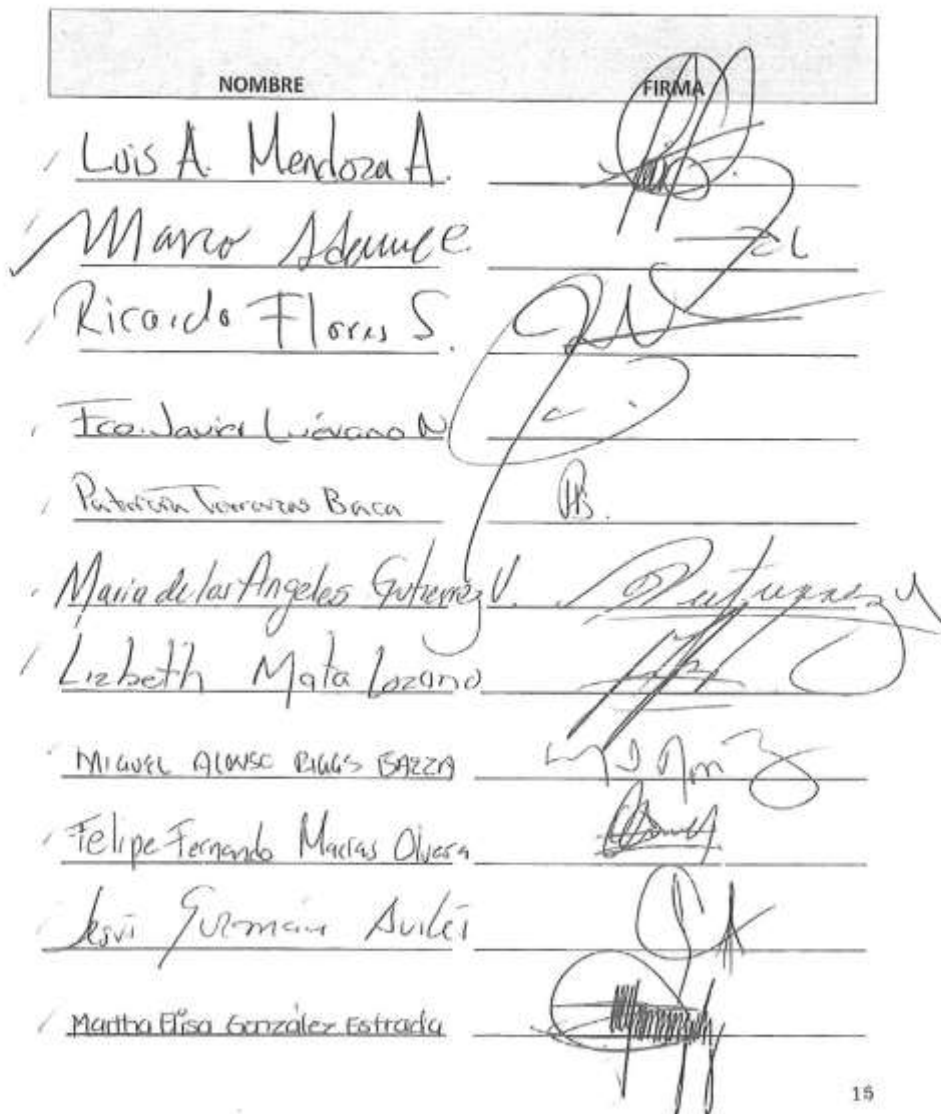 NOMBRE FIRMA
Luis A. Mendoza A.
Marco Adame C.
Ricardo Flores S.
Fco. Javier Luévano N.
Patricia Terrazas Baca
Maria de los Angeles Gutierrez V.
Lizbeth Mata Lozano
MIGUEL ALONSO RIGGS BAEZA
Felipe Fernando Macías Olvera
Jesús Guzmán Avilés
Martha Elisa González Estrada
15